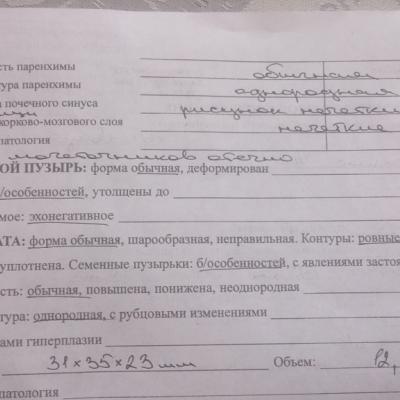 ость паренхимы обычная
тура паренхимы однородная
а почечного синуса рисунок нечеткий
корково-мозгового слоя нечеткие
патология
мочеточников
ОЙ ПУЗЫРЬ: форма обычная, деформирован
/особенностей, утолщены до
мое: эхонегативное
АТА: форма обычная, шарообразная, неправильная. Контуры: ровные
уплотнена. Семенные пузырьки: б/особенностей, с явлениями засто
сть: обычная, повышена, понижена, неоднородная
тура: однородная, с рубцовыми изменениями
ами гиперплазии
31×35×23 мм Объем: 12,
патология